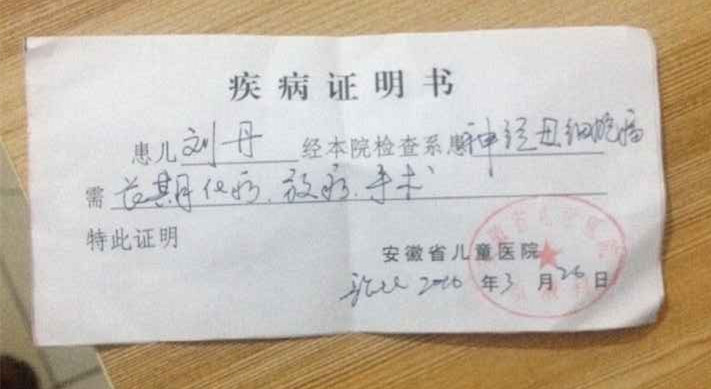 疾病证明书
患儿刘丹经本院检查系患神经母细胞瘤
需长期化疗、放疗、手术
特此证明
安徽省儿童医院
2016年3月26日